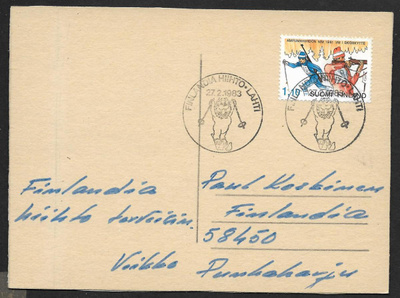 FINLANDIA HIIHTO • LAHTI
27.2.1983
FINLANDIA HIIHTO • LAHTI
1,10 SUOMI FINLAND
Finlandia
hiihto terveisin.
Veikko
Paul Koskinen
Finlandia
58450
Punkaharju